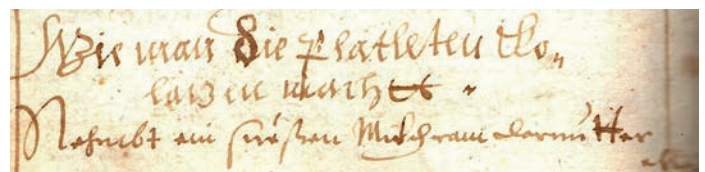 Wie man die Plat leten Ko,,
latzen macht
Nehmbt ein süeßen Milchram darunder